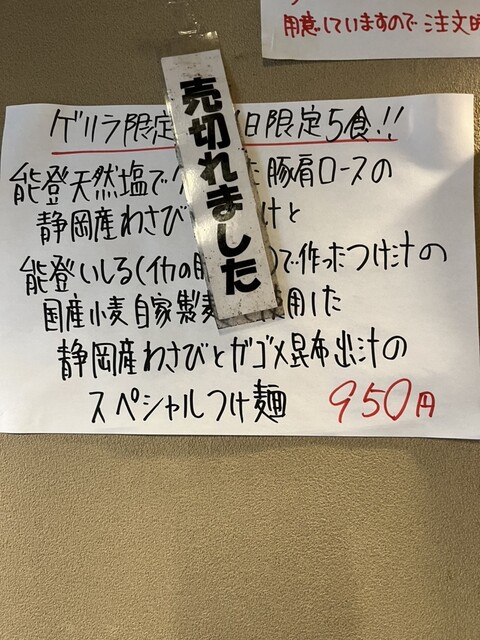 用意していますので注文時
売切れました
ゲリラ限定 日限定5食!!
能登天然塩で 豚肩ロースの
静岡産わさび けと
能登いしる(イカの )で作ったつけ汁の
国産小麦自家製麺 使用した
静岡産わさびとガゴメ昆布出汁の
スペシャルつけ麺 950円